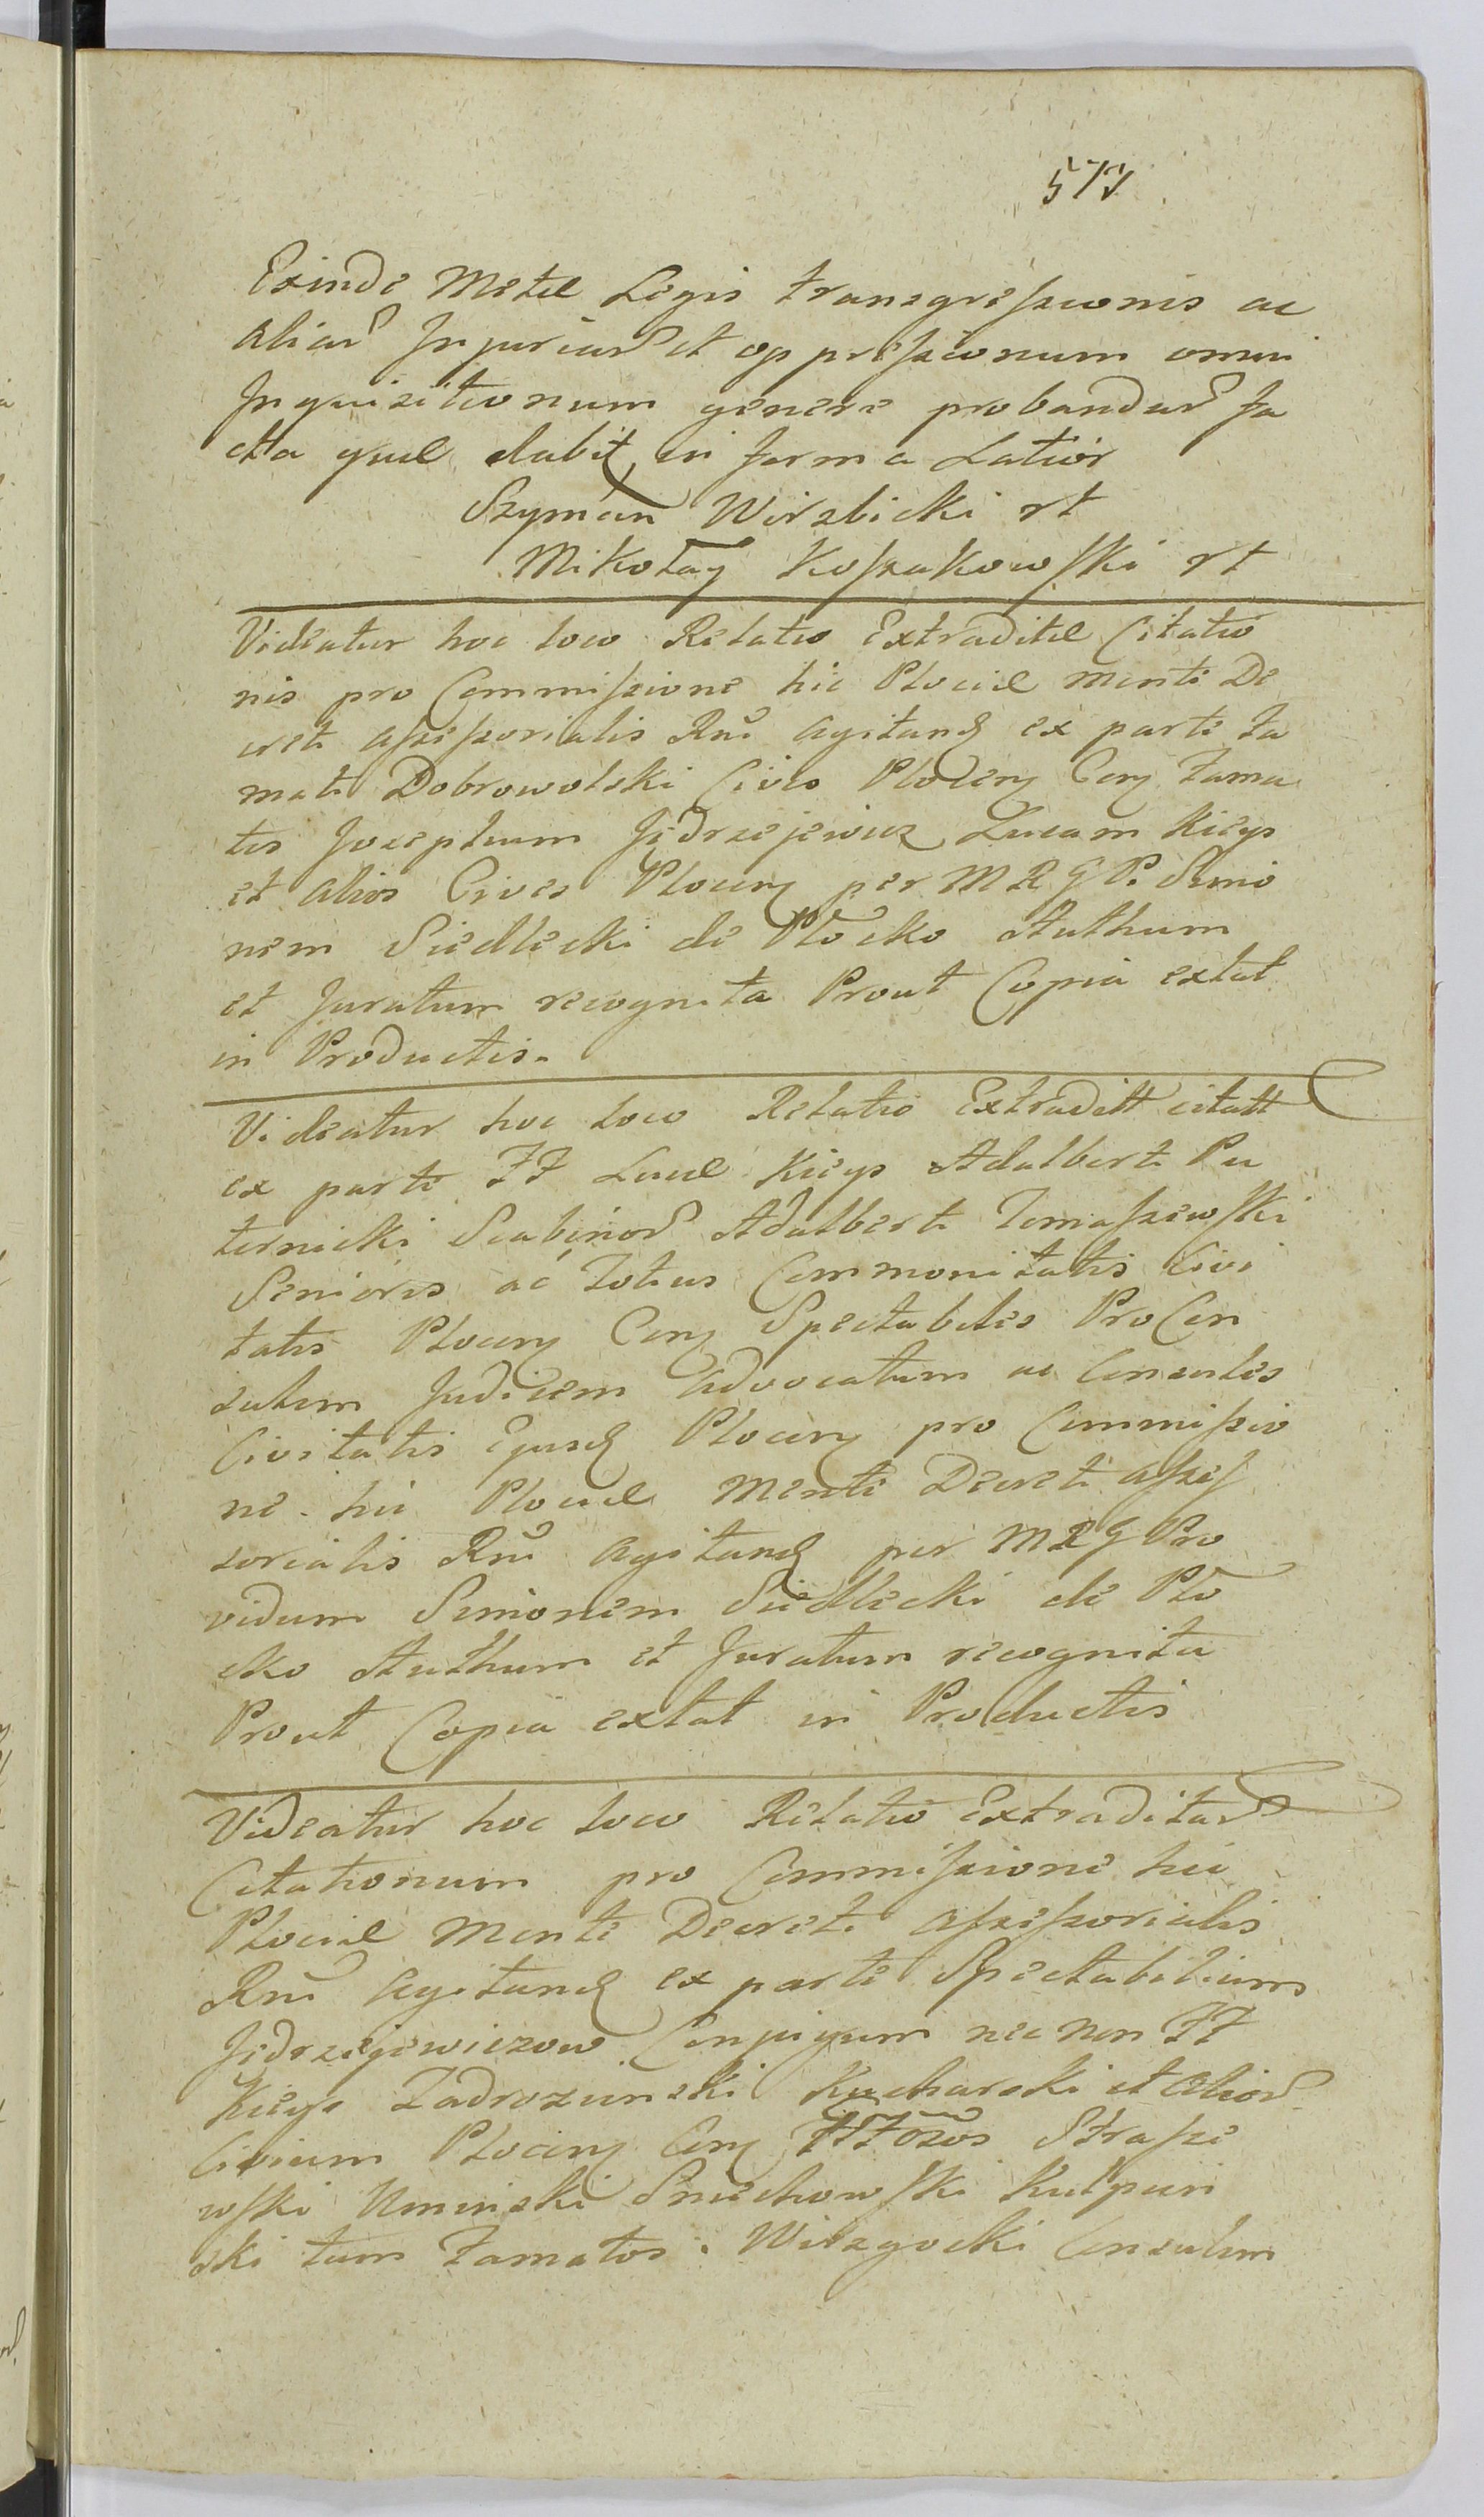 577
Exinde Metæ Legis transgressionis ac
aliar Injuriar et oppressionum omni
Inquisitionum genere probandar Ja
cta quæ dabit in forma Latior
Szyman Wirzbicki rt
Mikołay Kossakowski rt
Videatur hoc loco Relatio Extraditæ Citatio
nis pro Commissione hic Plociæ mente De
creti assessorialis Rni agitand ex parte fa
mati Dobrowolski Civis Plocen Cen fama
tos Josephum Jędrzejewicz Lucam Kieys
et alios Cives Plocen per M R G P. Simo
nem Siedlecki de Płocko Authum
et Juratum recognita Prout Copia extat
in Productis.
Videatur hoc loco Relatio Extraditt citatt
ex parte FF Lucæ Kieys Adalberti Pu
ternicki Scabinor Adalberti Tomaszewski
Senioris ac Totius Commonitatis Civi
tatis Plocen Cen Spectabiles ProCon
sulem Judicem advocatum ac Consules
Civitatis Ejusd Plocen pro Commissio
ne hic Plociæ Mente Decreti asses
sorialis Rni agitand per MRG Pro
vidum Simonem Siedlecki de Pło
cko Authum et Juratum recognita
Prout Copia extat in Productis
Videatur hoc loco Relatio Extraditar
Citationum pro Commissione hic
Plociæ Mente Decreti assessorialis
Rni agitand ex parte Spectabilium
Jędrzejewiczow Conjugum nec non FF
Kieys Zadrozunski Kucharski et alior
Civium Plocen Cen Strasze
wski Uminski Sniechowski Kulpin
ski tum Famatos Wilzgocki Consulem